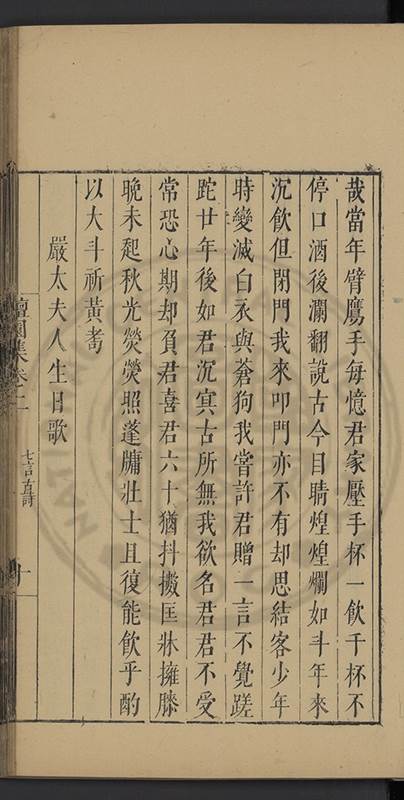 哉當年臂鷹手每憶君家壓手杯一飲千杯不
停口酒後瀾翻說古今目睛煌煌爛如斗年來
沉飲但閉門我來叩門亦不有却思結客少年
時變滅白衣與蒼狗我嘗許君贈一言不覺蹉
跎廿年後如君沉寘古所無我欲名君君不受
常恐心期却負君喜君六十猶抖擻匡牀擁膝
晩未起秋光熒熒照蓬牖壯士且復能飲乎酌
以大斗祈黃耇
嚴太夫人生日歌
檀園集卷之二
七言古詩
十